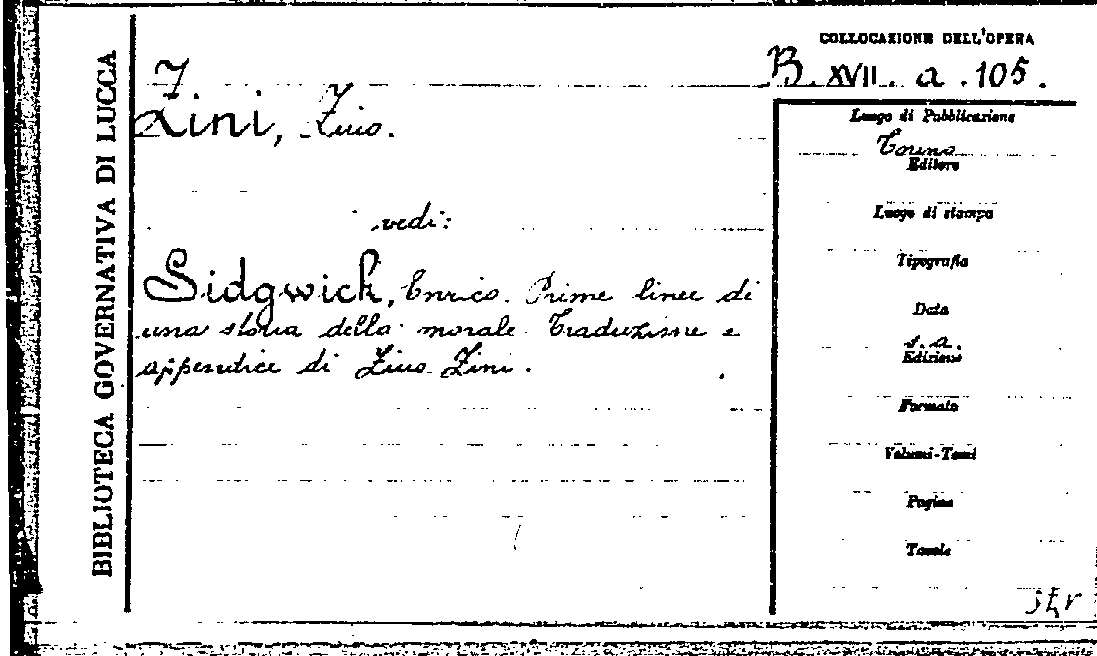 BIBLIOTECA GOVERNATIVA DI LUCCA
Zini, Zino.
vedi:
Sidgwick, Enrico. Prime linee di
una storia della morale. Traduzione e
appendice di Zino Zini.
COLLOCAZIONE DELL'OPERA
B. XVII. a. 105.
Luogo di Pubblicazione
Torino
Editore
Luogo di stampa
Tipografia
Data
s. a.
Edizione
Formato
Volumi-Tomi
Pagine
Tavole